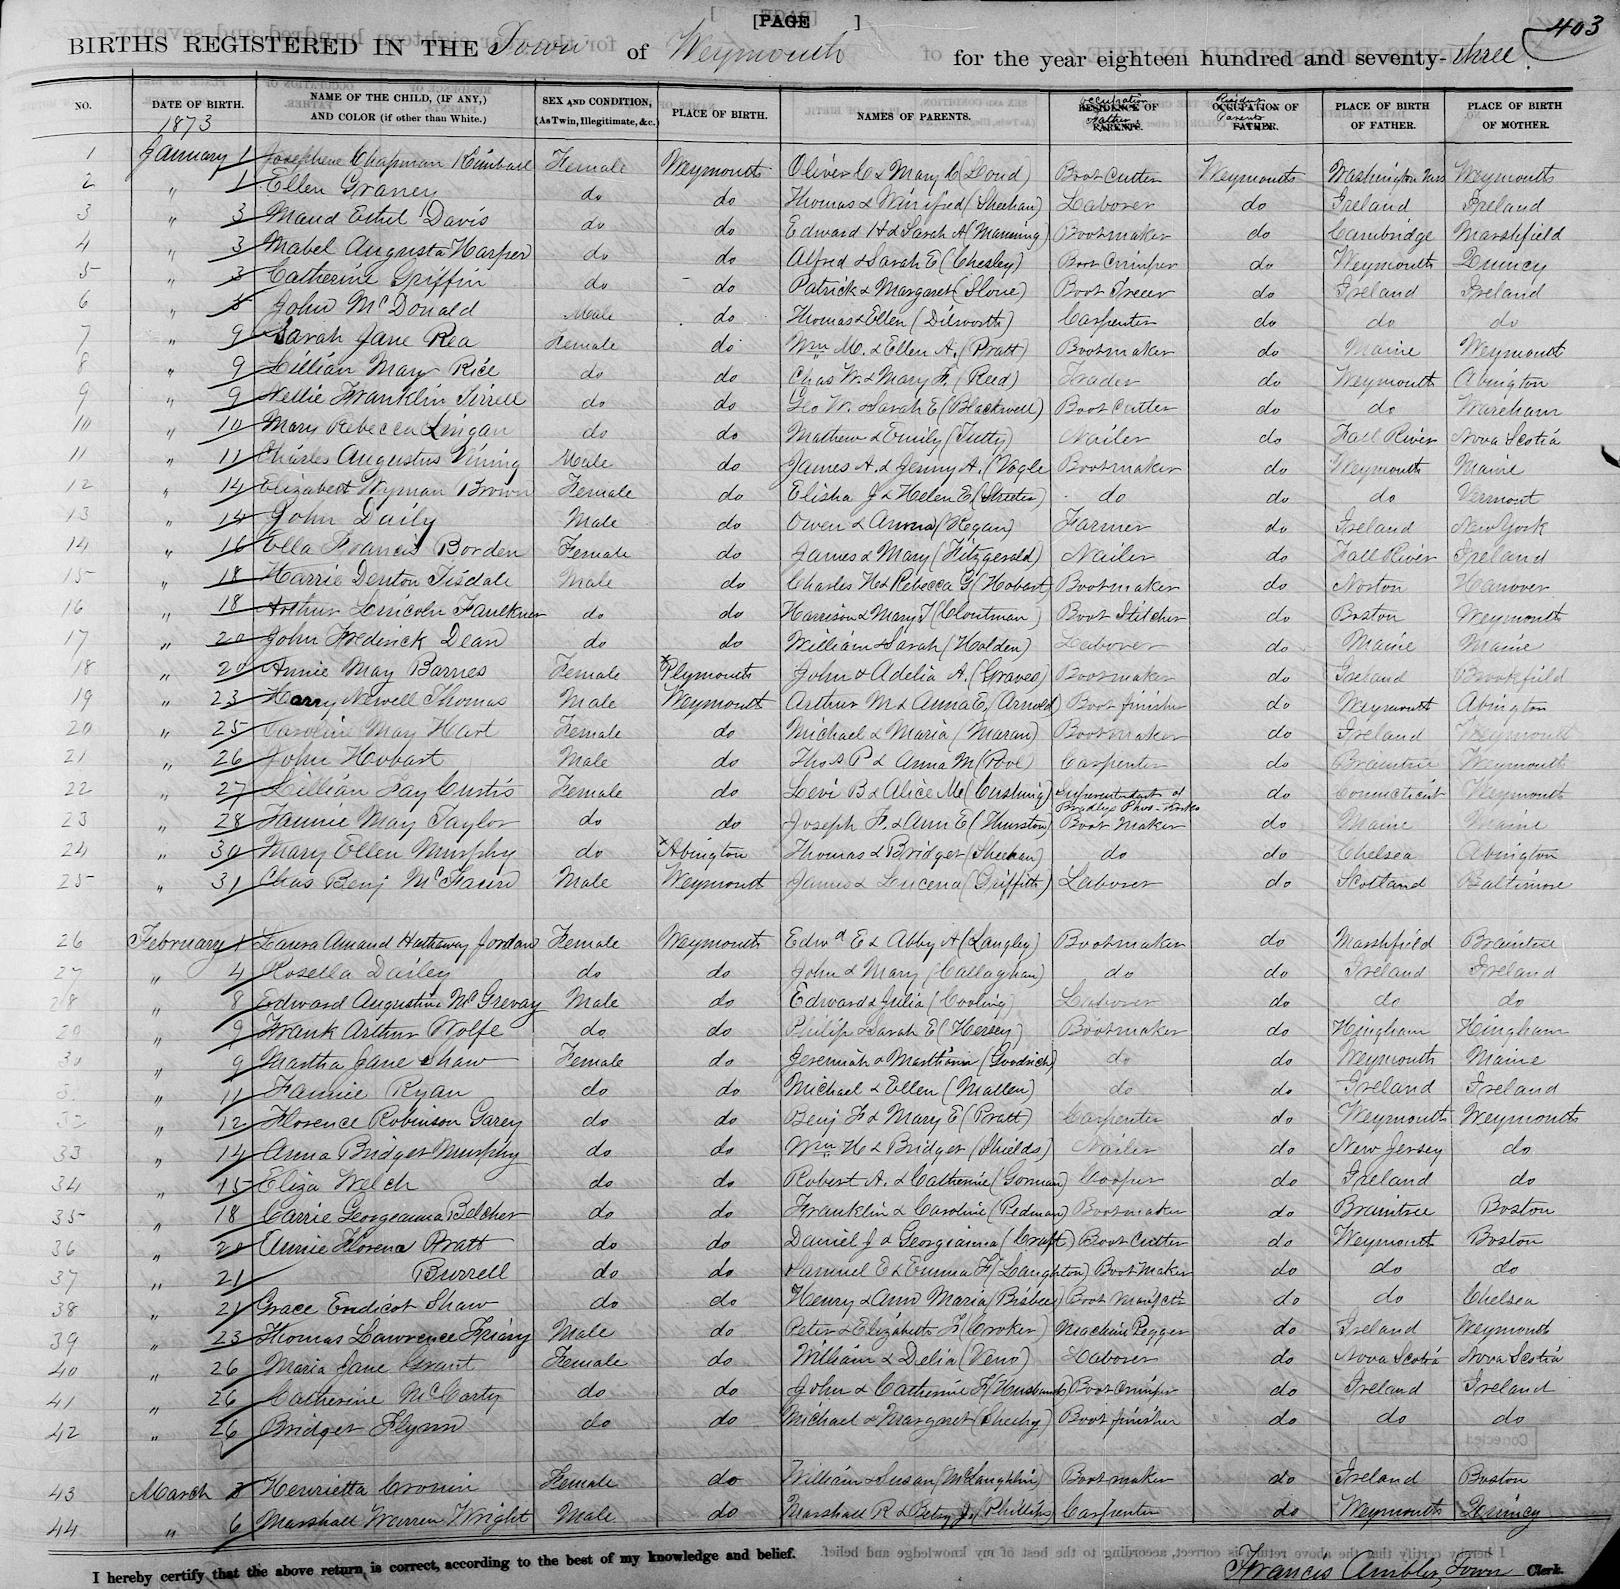 [PAGE ]
403
BIRTHS REGISTERED IN THE Town of Weymouth for the year eighteen hundred and seventy-three.
NO. DATE OF BIRTH. 1873 NAME OF THE CHILD, (IF ANY,) AND COLOR (if other than White.) SEX AND CONDITION, (As Twin, Illegitimate, &c.) PLACE OF BIRTH. NAMES OF PARENTS. RESIDENCE OF PARENTS. Occupation Father OCCUPATION OF FATHER. Resident Parents PLACE OF BIRTH OF FATHER. PLACE OF BIRTH OF MOTHER.
1 January 1 Josephine Chapman Kimball Female Weymouth Oliver C & Mary C (Loud) Boot Cutter Weymouth Washington Weymouth
2 " 1 Ellen Graney do do Thomas & Winifred (Sheehan) Laborer do Ireland Ireland
3 " 3 Maud Ethel Davis do do Edward H & Sarah A (Manning) Bootmaker do Cambridge Marshfield
4 " 3 Mabel Augusta Harper do do Alfred & Sarah E (Chesley) Boot Crimper do Weymouth Quincy
5 " 3 Catherine Griffin do do Patrick & Margaret (Slone) Boot Treer do Ireland Ireland
6 " John McDonald Male do Thomas & Ellen (Dilworth) Carpenter do do do
7 " 9 Sarah Jane Rea Female do Wm M. & Ellen A. (Pratt) Bootmaker do Maine Weymouth
8 " 9 Lillian May Rice do do Chas W. & Mary F. (Reed) Trader do Weymouth Abington
9 " 9 Nellie Franklin Tirrell do do Geo W. & Sarah E (Blackwell) Boot Cutter do do Wareham
10 " 10 Mary Rebecca Linigan do do Mathew & Emily (Tutty) Nailer do Fall River Nova Scotia
11 " 11 Charles Augustus Vining Male do James A. & Jenny A. (Vogle Bootmaker do Weymouth Maine
12 " 14 Elizabeth Wyman Brown Female do Elisha J & Helen E (Streeter) do do do Vermont
13 " 14 John Daily Male do Owen & Anna (Regan) Farmer do Ireland New York
14 " 16 Ella Francis Borden Female do James & Mary (Fitzgerald) Nailer do Fall River Ireland
15 " 18 Harrie Denton Tisdale Male do Charles H & Rebecca G (Hobart Bootmaker do Norton Hanover
16 " 18 Arthur Lincoln Faulkner do do Harrison & Mary T (Cloutman) Boot Stitcher do Boston Weymouth
17 " 20 John Frederick Dean do do William & Sarah (Holden) Laborer do Maine Maine
18 " 20 Annie May Barnes Female x Plymouth John & Adelia A. (Graves) Bootmaker do Ireland Brookfield
19 " 23 Harry Newell Thomas Male Weymouth Arthur M & Anna E, Arnold) Boot finisher do Weymouth Abington
20 " 25 Caroline May Hart Female do Michael & Maria (Maran) Bootmaker do Ireland Weymouth
21 " 26 John Hobart Male do Thos P & Anna M (Pool) Carpenter do Braintree Weymouth
22 " 27 Lillian Fay Curtis Female do Levi B & Alice M (Cushing) Superintendent of Bradleys Phos-Works do Connecticut Weymouth
23 " 28 Fannie May Taylor do do Joseph F. & Ann E (Thurston) Boot Maker do Maine Maine
24 " 30 Mary Ellen Murphy do x Abington Thomas & Bridget (Sheehan) do do Chelsea Abington
25 " 31 Chas Benj McFaun Male Weymouth James & Lucena (Griffith) Laborer do Scotland Baltimore
26 February 1 Laura Amand Hatheway Jordan Female Weymouth Edwd E & Abby A (Langley) Bootmaker do Marshfield Braintree
27 " 4 Rosella Dailey do do John & Mary (Callaghan) do do Ireland Ireland
28 " 8 Edward Augustine McGrevay Male do Edward & Julia (Cooling) Laborer do do do
29 " 9 Frank Arthur Wolfe do do Philip & Sarah E (Hersey) Bootmaker do Hingham Hingham
30 " 9 Martha Jane Shaw Female do Jeremiah & Marthann (Goodrich) do do Weymouth Maine
3 " 11 Fannie Ryan do do Michael & Ellen (Mallen) do do Ireland Ireland
32 " 12 Florence Robinson Garey do do Benj F & Mary E (Pratt) Carpenter do Weymouth Weymouth
33 " 14 Anna Bridget Murphy do do Wm H & Bridget (Shields) Nailer do New Jersey do
34 " 15 Eliza Welch do do Robert A. & Catherine (Gorman) Cooper do Ireland do
35 " 18 Carrie Georgeanna Belcher do do Franklin & Caroline (Redman) Bootmaker do Braintree Boston
36 " 20 Annie Florena Pratt do do Daniel J & Georgianna (Craft) Boot Cutter do Weymouth Boston
37 " 21 Burrell do do Samuel E & Emma F (Laughton) Boot Maker do do do
38 " 21 Grace Endicot Shaw do do Henry & Ann Maria (Bisbee) Boot do do Chelsea
39 " 23 Thomas Lawrence Friary Male do Peter & Elizabeth F (Croker) Machine Pegger do Ireland Weymouth
40 " 26 Maria Jane Grant Female do William & Delia (Veno) Laborer do Nova Scotia Nova Scotia
41 " 26 Catherine McCarty do do John & Catherine F (Husband) Boot Crimper do Ireland Ireland
42 " 26 Bridget Flynn do do Michael & Margaret (Sheehy) Boot finisher do do do
43 March 3 Henrietta Cronin Female do William & Susan (McLaughlin) Boot maker do Ireland Boston
44 " 6 Marshall Warren Wright Male do Marshall R & Betsy J. (Phillips) Carpenter do Weymouth Quincy
I hereby certify that the above return is correct, according to the best of my knowledge and belief.
Francis Ambler, Town Clerk.